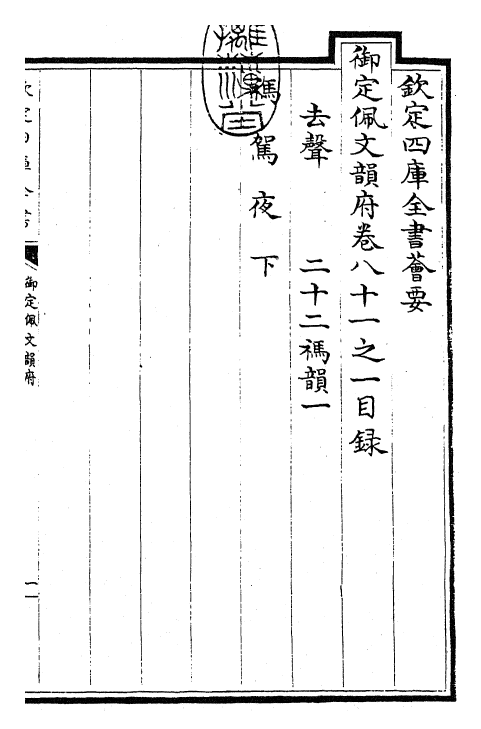 欽定四庫全書薈要
御定佩文韻府卷八十一之一目録
去聲 二十二禡韻一
禡 駕 夜 下
御定佩文韻府